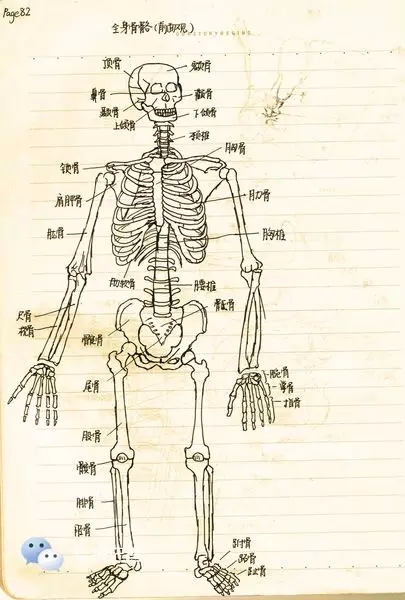 Page82
全身骨骼(前面观)
顶骨
额骨
鼻骨
颧骨
颞骨
下颌骨
上颌骨
颈椎
胸骨
锁骨
肩胛骨
肋骨
肱骨
胸椎
肋软骨
腰椎
骶骨
尺骨
桡骨
髋骨
尾骨
腕骨
掌骨
指骨
股骨
髌骨
腓骨
胫骨
跗骨
跖骨
趾骨